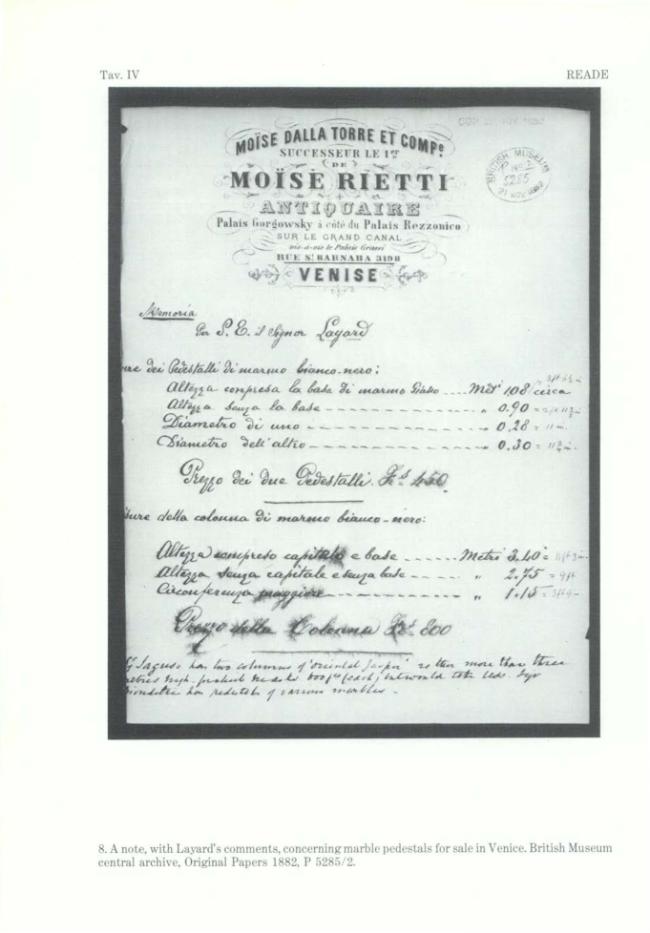 Tav. IV
READE
MOÏSE DALLA TORRE ET COMP.e
SUCCESSEUR LE 1er
(DE)
MOÏSE RIETTI
ANTIQUAIRE
Palais Gorgowsky à côté du Palais Rezzonico
SUR LE GRAND CANAL
vis-à-vis le Palais Grassi
RUE St BARNABA 3198
VENISE
BRITISH MUSEUM
5285
Memoria
Per S. E. il Signor Layard
ure dei Pedestalli di marmo bianco-nero:
Altezza compresa la base di marmo Giallo .... Met' 1.08 circa
Altezza senza la base " 0.90
Diametro di uno " 0.28 = 11 in
Diametro dell'altro " 0.30
Prezzo dei due Pedestalli Fs 450
sure della colonna di marmo bianco-nero:
Altezza compreso capitale e base ...... Metri 3.40
Altezza senza capitale e senza base " 2.75 = 9ft
Circonferenza maggiore " 1.15
Prezzo della Colonna Fs 800
has two columns of "oriental jasper" less than more than three
high. for which he asks each, but would take less. Sigr
has pedestals of various marbles.
8. A note, with Layard's comments, concerning marble pedestals for sale in Venice. British Museum
central archive, Original Papers 1882, P 5285/2.